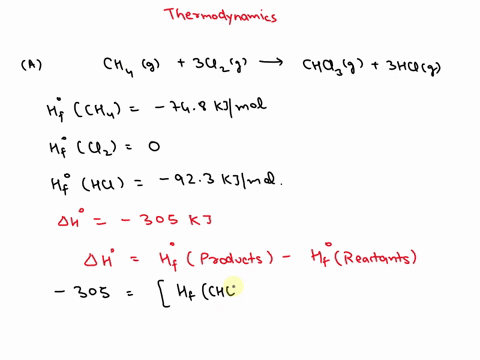 Thermodynamics
(A) CH₄ (g) + 3Cl₂ (g) → CHCl₃ (g) + 3HCl (g)
H°f (CH₄) = -74.8 KJ/mol
H°f (Cl₂) = 0
H°f (HCl) = -92.3 KJ/mol.
ΔH° = - 305 KJ
ΔH° = H°f (Products) - H°f (Reactants)
- 305 = [ Hf (CHC